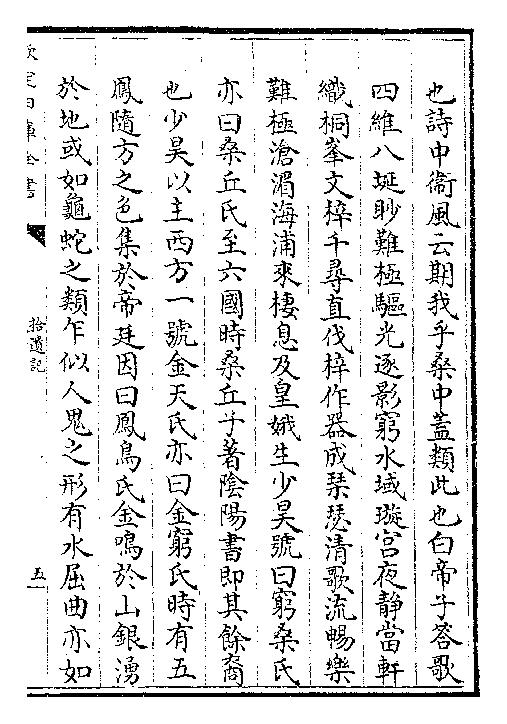 也詩中衞風云期我乎桑中蓋類此也白帝子答歌
四維八埏眇難極驅光逐影窮水域璇宫夜靜當軒
織桐峯文梓千尋直伐梓作器成琴瑟清歌流暢樂
難極滄湄海浦來棲息及皇娥生少昊號曰窮桑氏
亦曰桑丘氏至六國時桑丘子著陰陽書即其餘裔
也少昊以主西方一號金天氏亦曰金窮氏時有五
鳳隨方之色集於帝廷因曰鳳鳥氏金鳴於山銀湧
於地或如龜蛇之類乍似人鬼之形有水屈曲亦如
欽定四庫全書
拾遺記
五